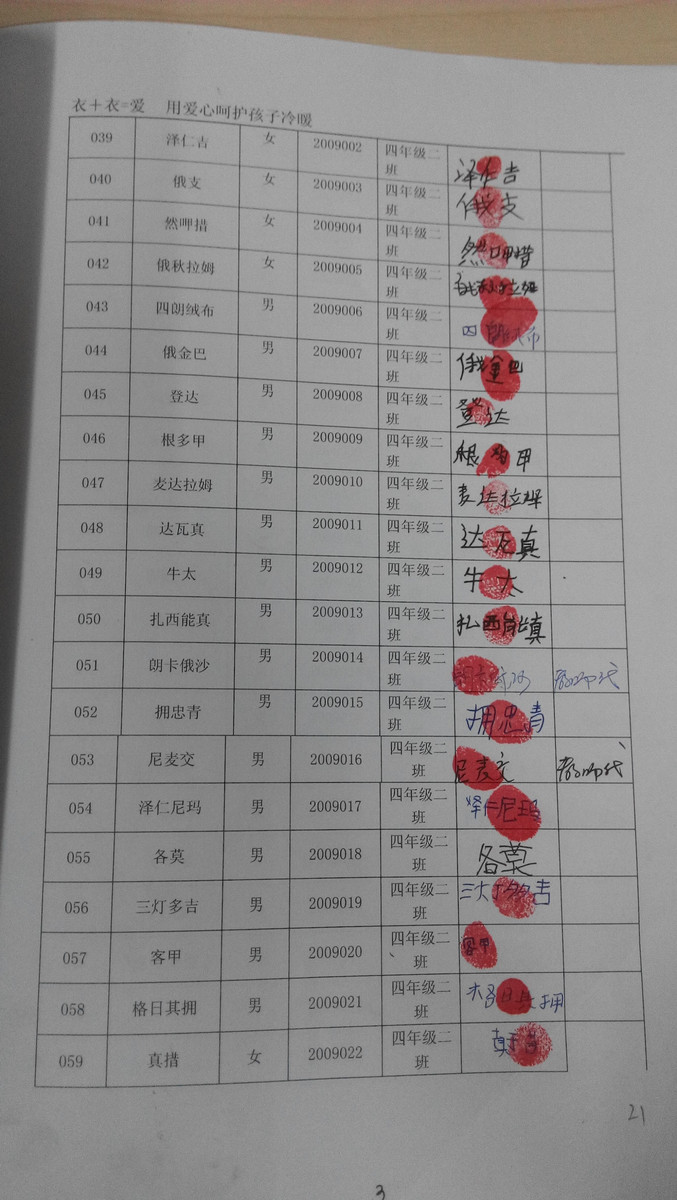 衣+衣=爱 用爱心呵护孩子冷暖
039 泽仁吉 女 2009002 四年级二班 泽仁吉
040 俄支 女 2009003 四年级二班 俄支
041 然呷措 女 2009004 四年级二班 然呷措
042 俄秋拉姆 女 2009005 四年级二班 俄秋拉姆
043 四朗绒布 男 2009006 四年级二班 四朗绒布
044 俄金巴 男 2009007 四年级二班 俄金巴
045 登达 男 2009008 四年级二班 登达
046 根多甲 男 2009009 四年级二班 根多甲
047 麦达拉姆 男 2009010 四年级二班 麦达拉姆
048 达瓦真 男 2009011 四年级二班 达瓦真
049 牛太 男 2009012 四年级二班 牛太
050 扎西能真 男 2009013 四年级二班 扎西能真
051 朗卡俄沙 男 2009014 四年级二班 教师代
052 拥忠青 男 2009015 四年级二班 拥忠青
053 尼麦交 男 2009016 四年级二班 尼麦交 教师代
054 泽仁尼玛 男 2009017 四年级二班 泽仁尼玛
055 各莫 男 2009018 四年级二班 各莫
056 三灯多吉 男 2009019 四年级二班 三灯多吉
057 客甲 男 2009020 四年级二班 客甲
058 格日其拥 男 2009021 四年级二班 格日其拥
059 真措 女 2009022 四年级二班 真措
21
3